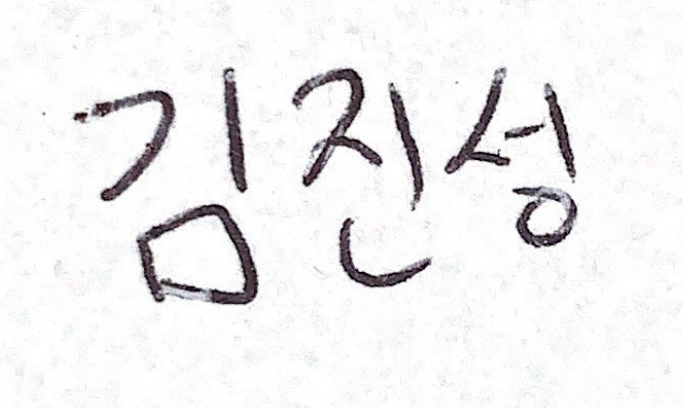 김진성